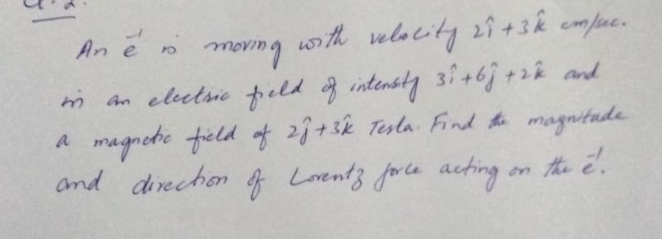 An e⁻ is moving with velocity 2î + 3k̂ cm/sec.
in an electric field of intensity 3î + 6ĵ + 2k̂ and
a magnetic field of 2ĵ + 3k̂ Tesla. Find the magnitude
and direction of Lorentz force acting on the e⁻.